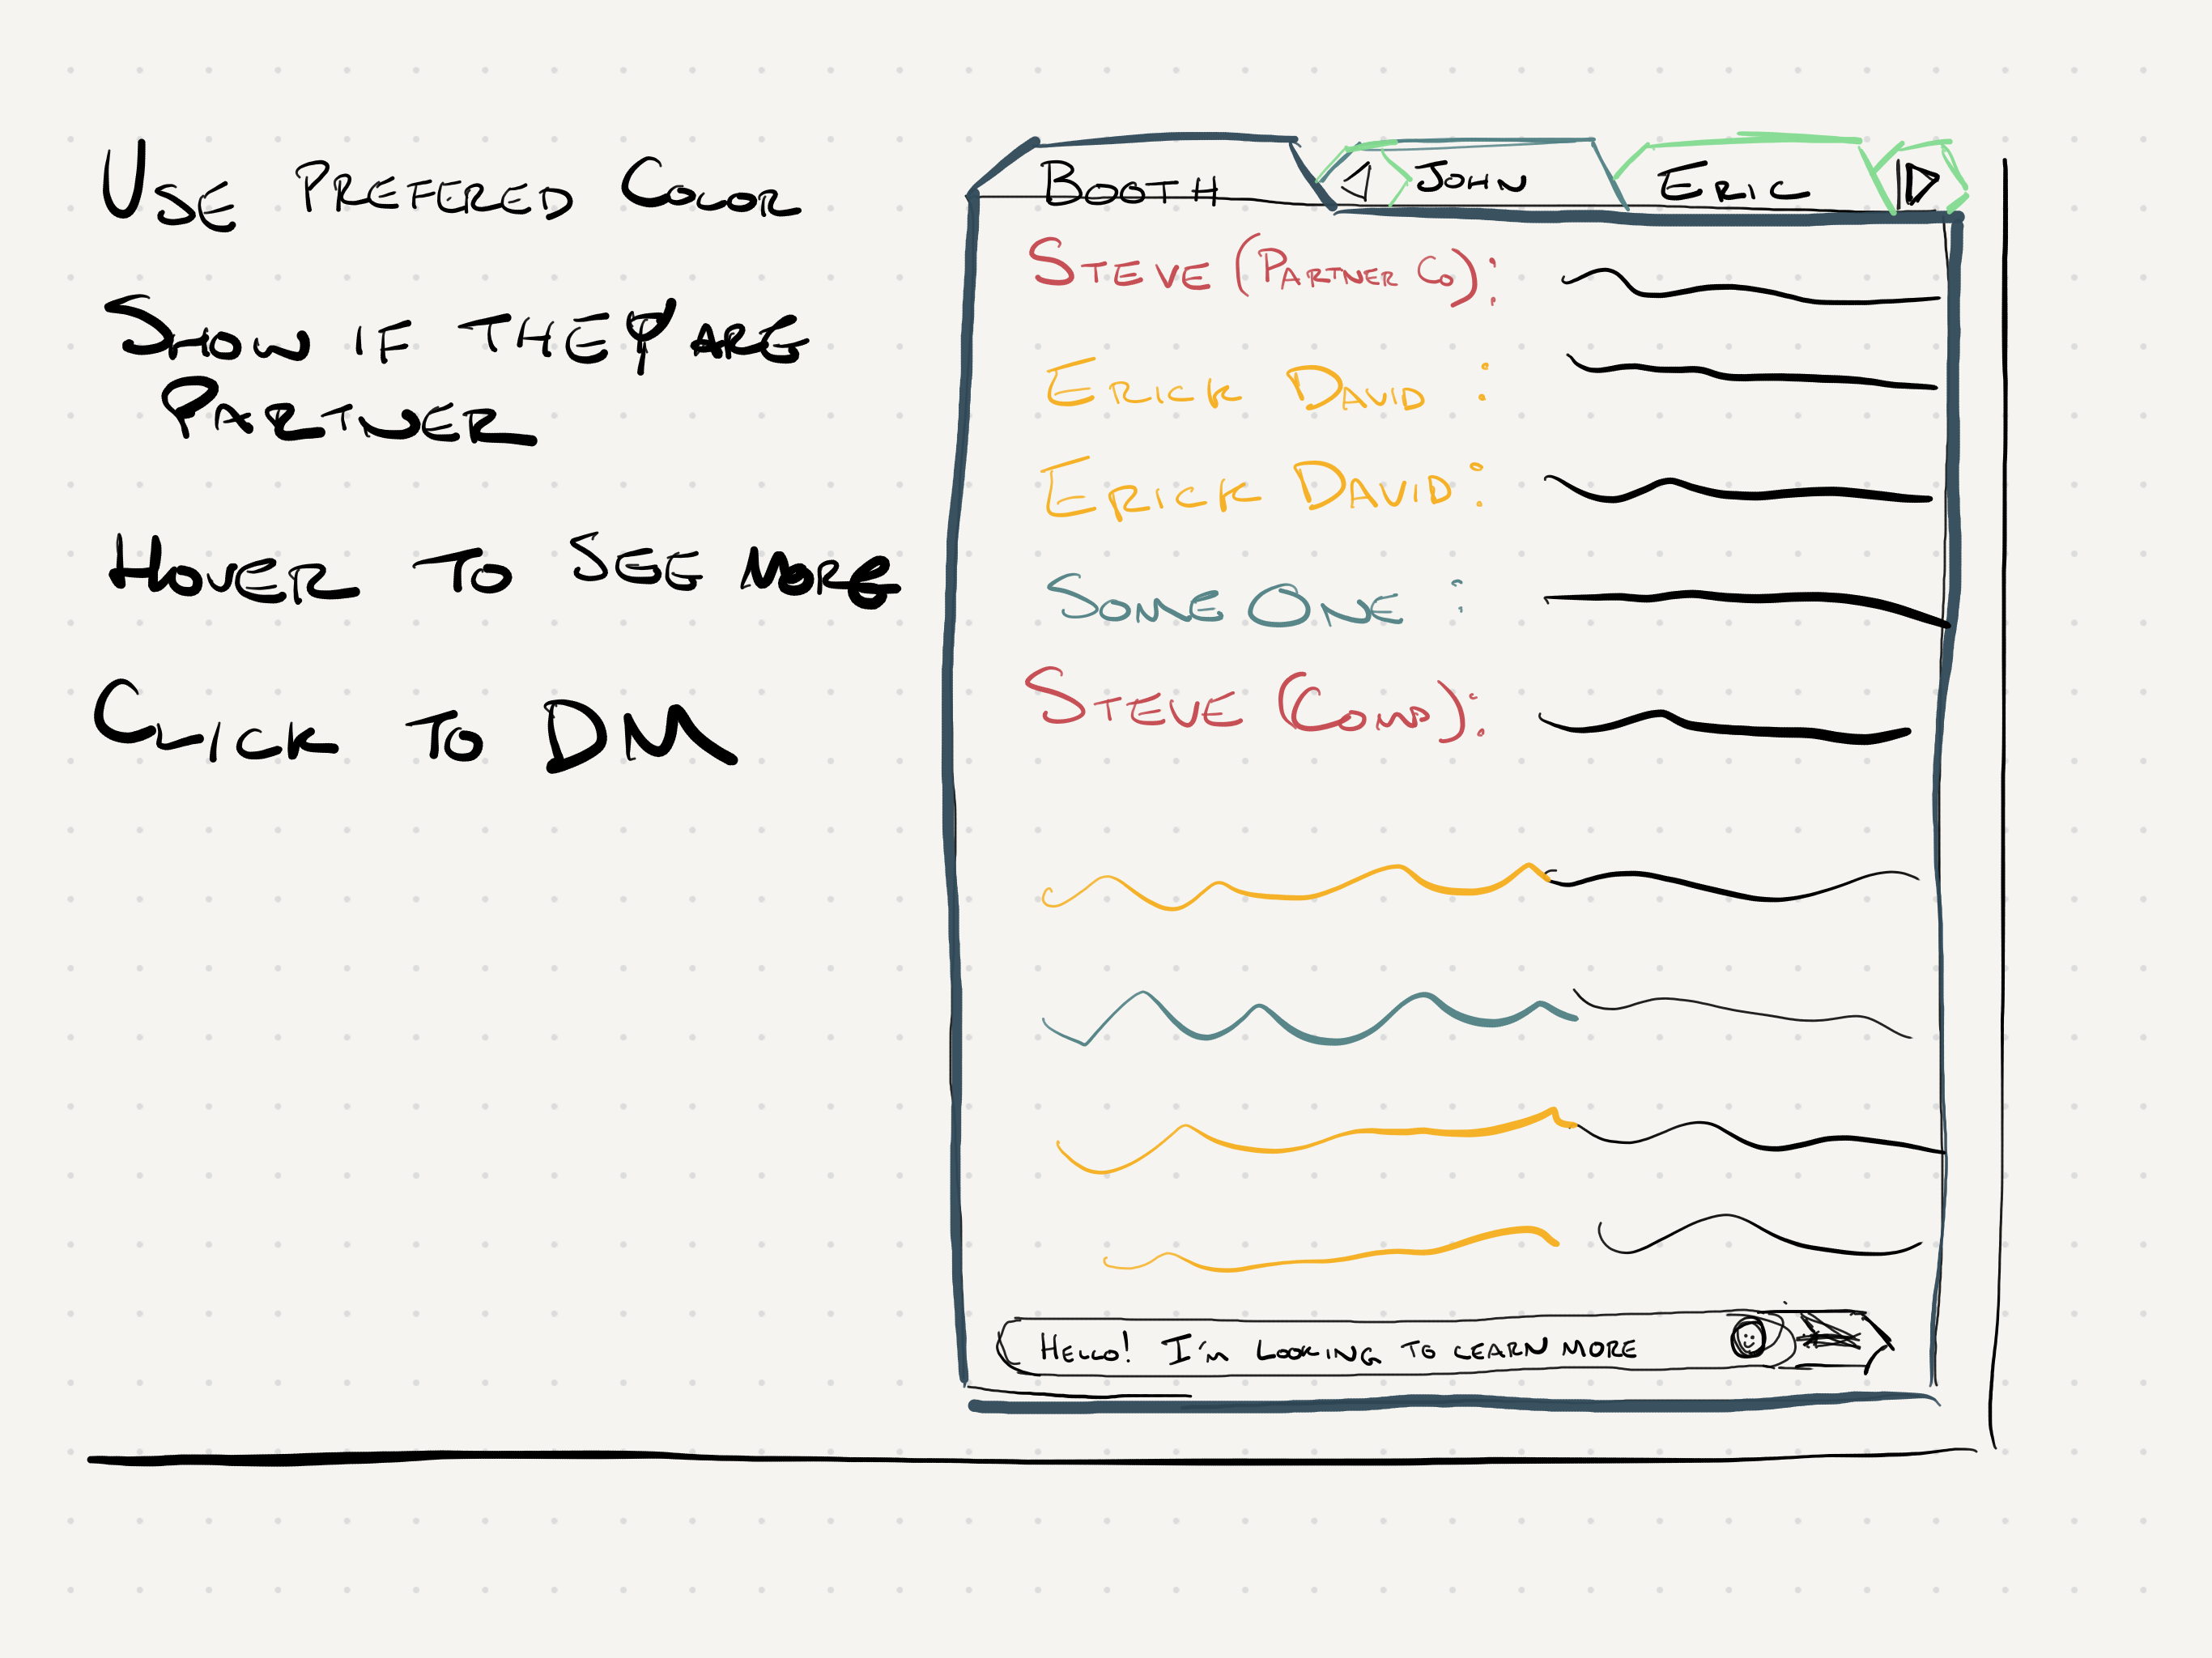 USE PREFERED COLOR
SHOW IF THEY ARE
PARTNER
HOVER TO SEE MORE
CLICK TO DM
BOOTH
JOHN
ERIC
STEVE (PARTNER CO):
ERICK DAVID :
ERICK DAVID:
SOME ONE :
STEVE ():
HELLO! I'M LOOKING TO LEARN MORE